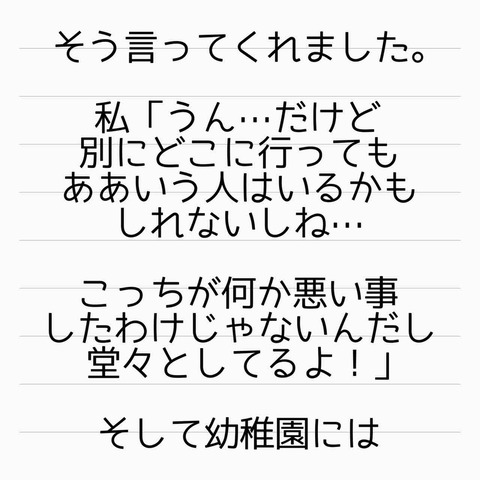 そう言ってくれました。
私「うん…だけど
別にどこに行っても
ああいう人はいるかも
しれないしね…
こっちが何か悪い事
したわけじゃないんだし
堂々としてるよ！」
そして幼稚園には